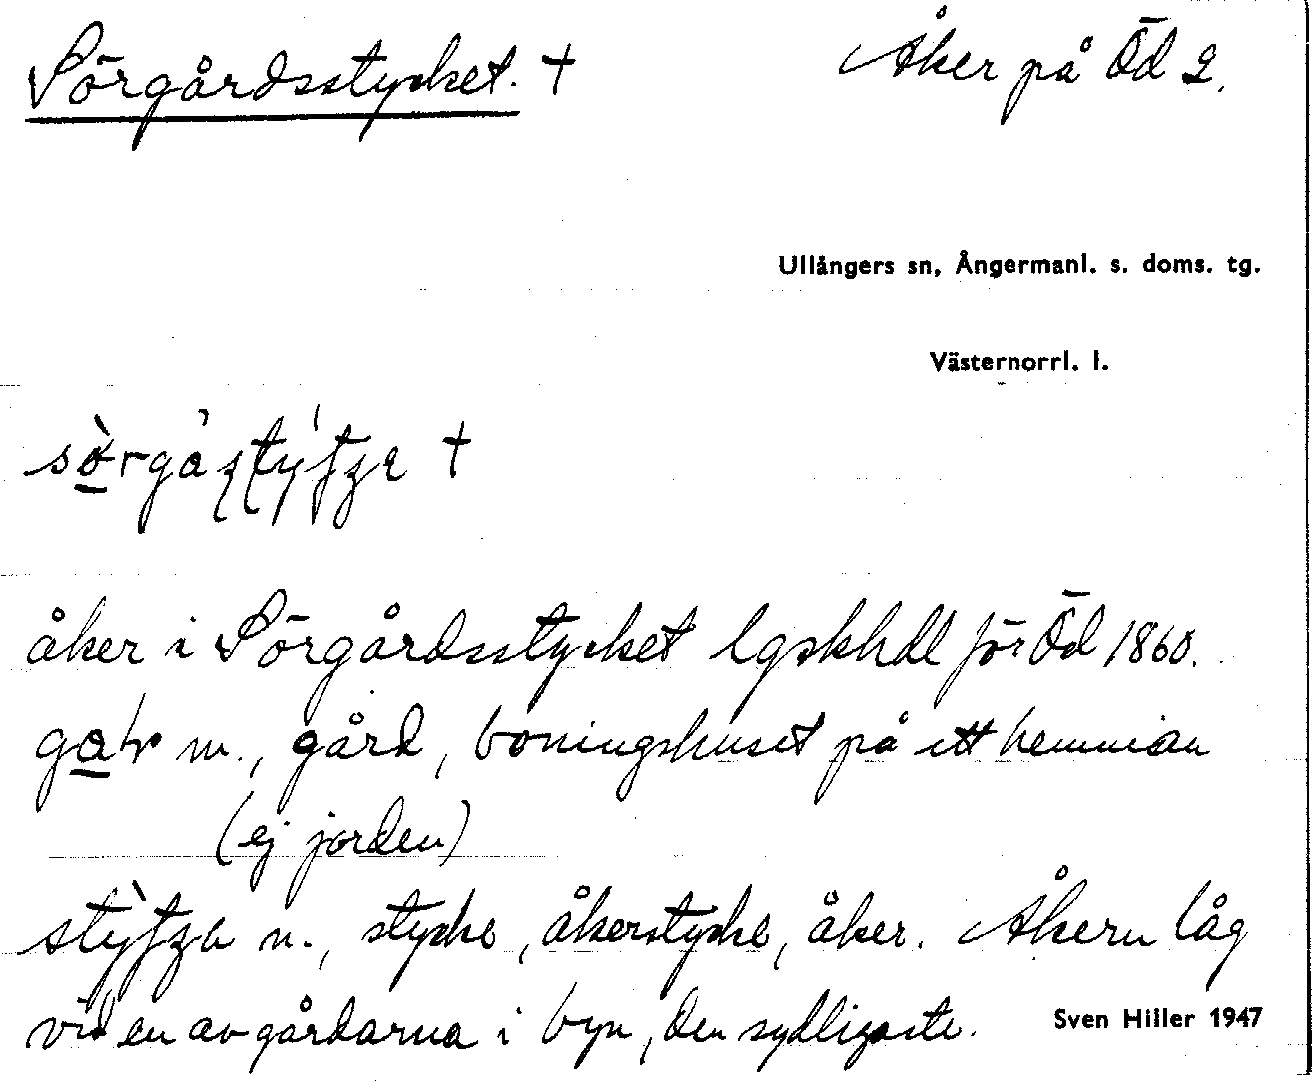 Sörgårdsstycket. †
Åker på Öd 2.
Ullångers sn, Ångermanl. s. doms. tg.
Västernorrl. l.
†
åker i Sörgårdsstycket lgskhdl för Öd 1860.
m., gård, boningshuset på ett hemman
(ej jorden)
n., stycke, åkerstycke, åker. Åkern låg
vid en av gårdarna i byn, den sydligaste.
Sven Hiller 1947